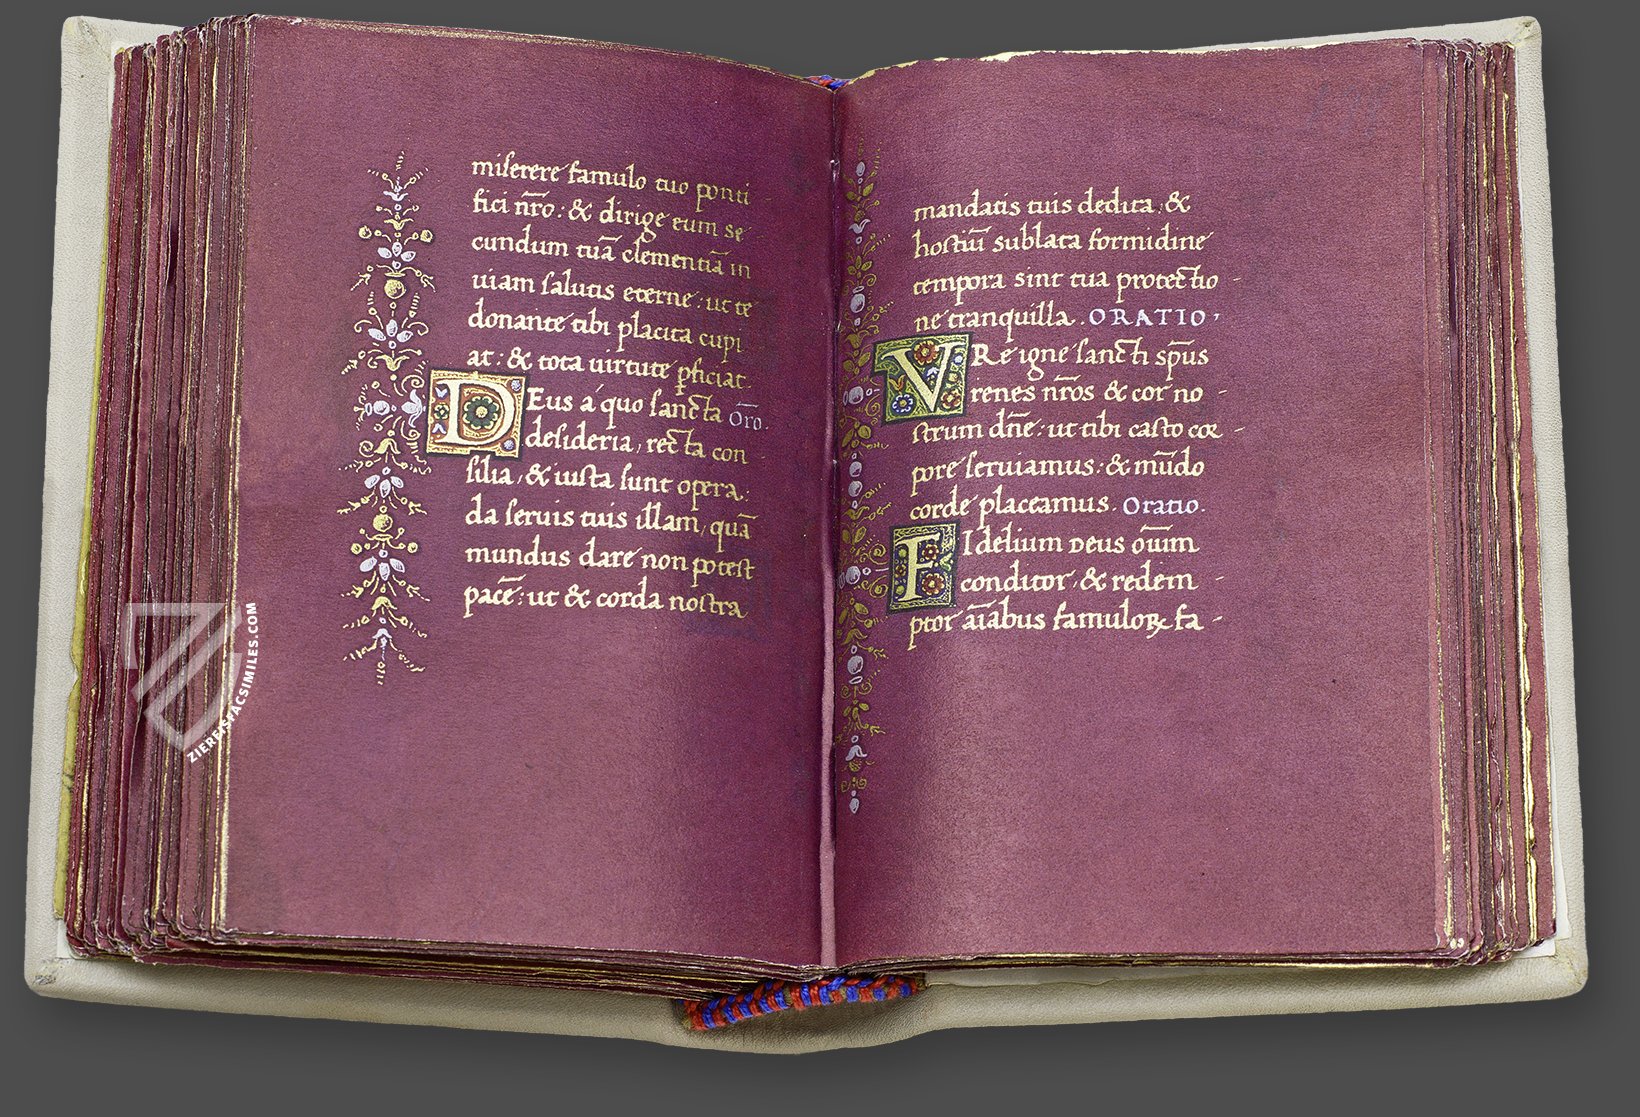 miserere famulo tuo ponti
fici nr̄o: & dirige eum se
cundum tuā clementiā in
uiam salutis eterne: ut te
donante tibi placita cupi
at: & tota uirtute ꝑficiat.
DEus á quo sancta Oro.
desideria, recta con
silia, & iusta sunt opera:
da seruis tuis illam, quā
mundus dare non potest
pacē: ut & corda nostra
mandatis tuis dedita, &
hostiū sublata formidine
tempora sint tua protectio
ne tranquilla. ORATIO,
VRe igne sancti sp̄us
renes nr̄os & cor no
strum dn̄e: ut tibi casto cor
pore seruiamus: & mūdo
corde placeamus. Oratio.
FIdelium Deus oīum
conditor, & redem
ptor aīabus famuloꝝ fa
ZIEREISFACSIMILES.COM